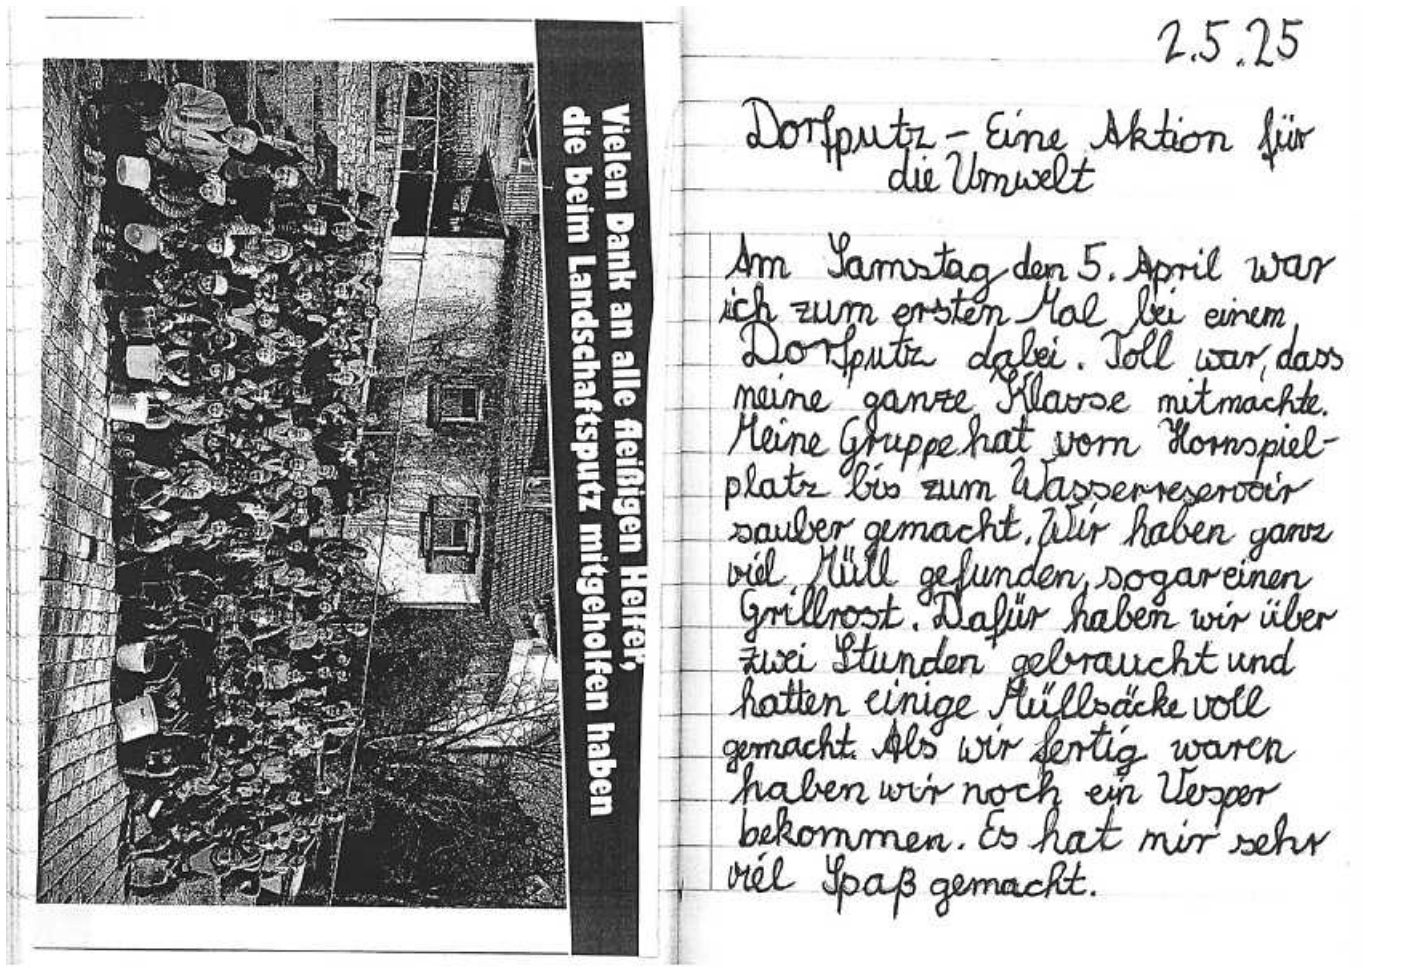 Vielen Dank an alle fleißigen Helfer,
die beim Landschaftsputz mitgeholfen haben
2.5.25
Dorfputz - Eine Aktion für
die Umwelt
Am Samstag den 5. April war
ich zum ersten Mal bei einem
Dorfputz dabei. Toll war, dass
meine ganze Klasse mitmachte.
Meine Gruppe hat vom Hornspiel-
platz bis zum Wasserreservoir
sauber gemacht. Wir haben ganz
viel Müll gefunden, sogar einen
Grillrost. Dafür haben wir über
zwei Stunden gebraucht und
hatten einige Müllsäcke voll
gemacht. Als wir fertig waren
haben wir noch ein Vesper
bekommen. Es hat mir sehr
viel Spaß gemacht.